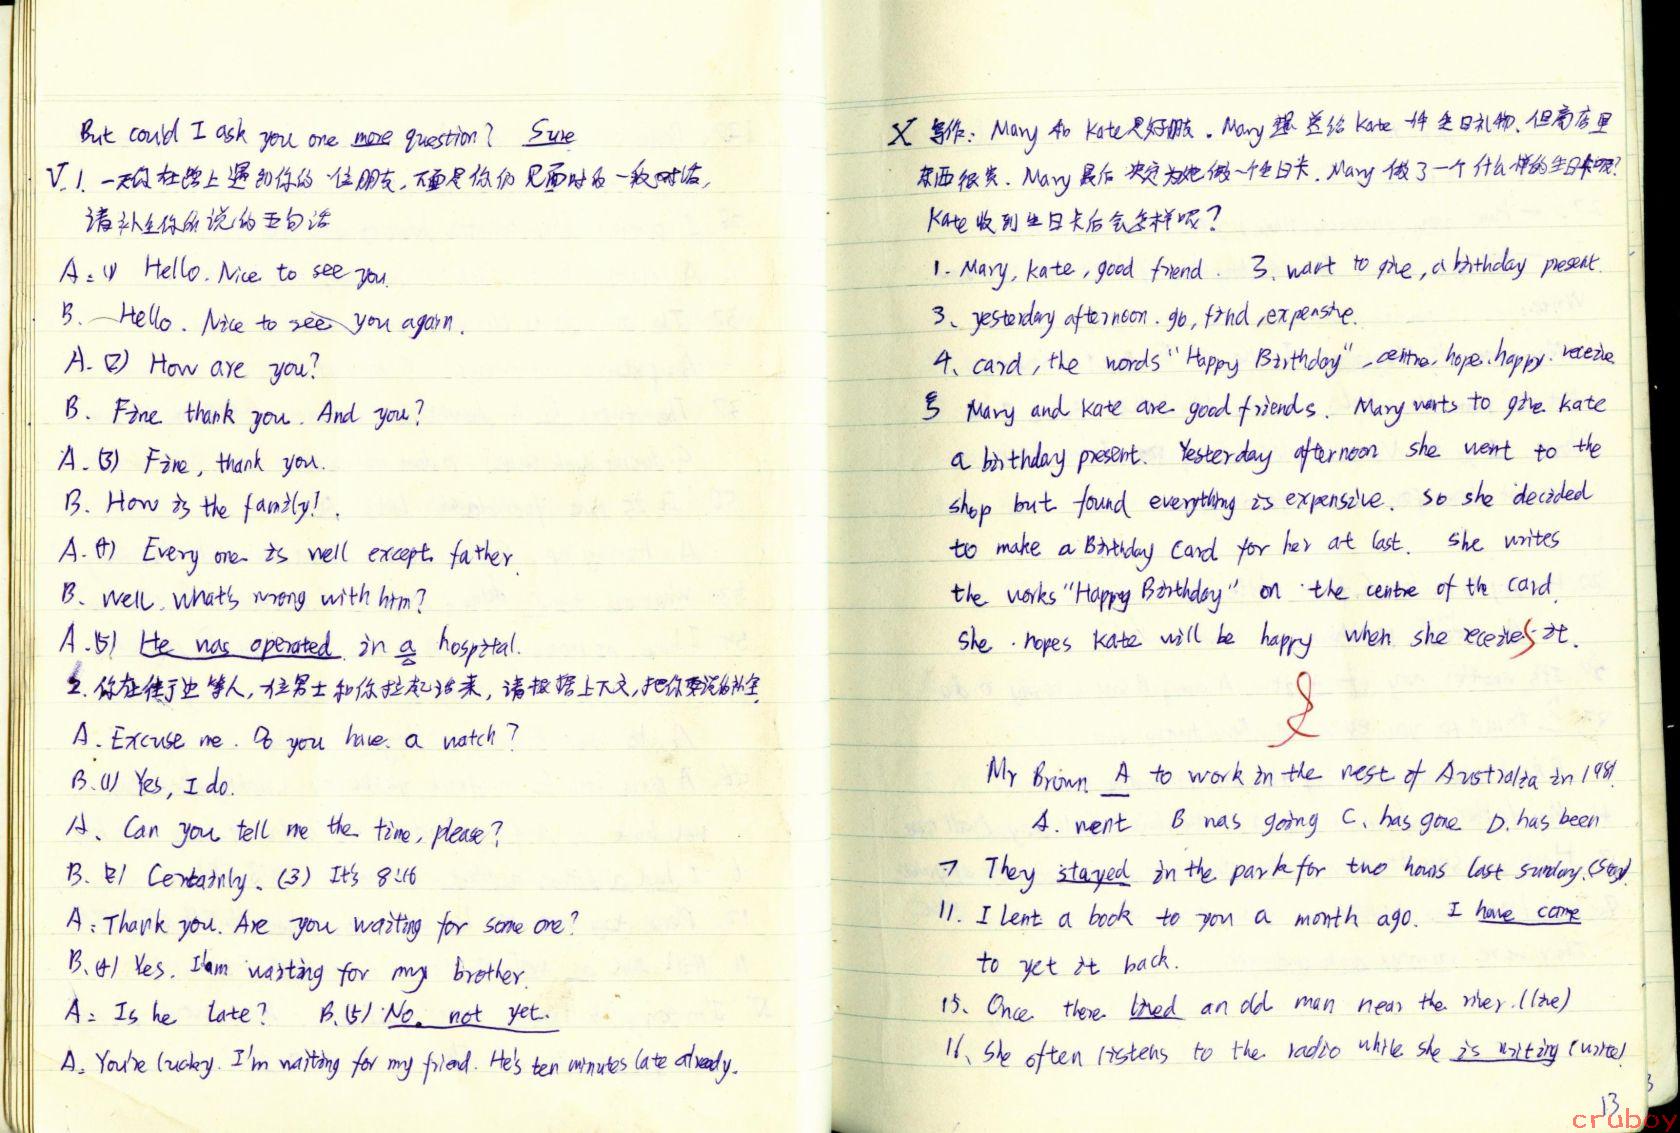 But could I ask you one more question? Sure
V. 1. 一天你在路上遇到你的一位朋友,下面是你们见面时的一段对话,
请补全你所说的五句话
A: (1) Hello. Nice to see you.
B. Hello. Nice to see you again.
A. (2) How are you?
B. Fine thank you. And you?
A. (3) Fine, thank you.
B. How is the family!.
A. (4) Every one is well except father.
B. Well. what's wrong with him?
A. (5) He was operated in a hospital.
2. 你在街边等人,一位男士和你拉起话来,请根据上下文,把你要说的补全.
A. Excuse me. Do you have a watch?
B. (1) Yes, I do.
A. Can you tell me the time, please?
B. (2) Certainly. (3) It's 8:16
A: Thank you. Are you waiting for some one?
B. (4) Yes. I am waiting for my brother.
A: Is he late? B. (5) No. not yet.
A: You're lucky. I'm waiting for my friend. He's ten minutes late already.
X 写作: Mary 和 Kate 是好朋友. Mary 想送给 Kate 一件生日礼物. 但商店里
东西很贵. Mary 最后决定为她做一个生日卡. Mary 做了一个什么样的生日卡呢?
Kate 收到生日卡后会怎样呢?
1. Mary, Kate, good friend. 3. want to give, a birthday present.
3. yesterday afternoon. go, find, expensive.
4. card, the words "Happy Birthday", centre, hope, happy. receive
5 Mary and Kate are good friends. Mary wants to give Kate
a birthday present. Yesterday afternoon she went to the
shop but found everything is expensive. So she decided
to make a Birthday Card for her at last. She writes
the works "Happy Birthday" on the centre of the card.
She hopes Kate will be happy when she receives it.
Mr Brown A to work in the west of Australia in 1981.
A. went B was going C. has gone D. has been
7 They stayed in the park for two hours last sunday. (stay)
11. I lent a book to you a month ago. I have come
to yet it back.
15. Once there lived an old man near the river. (live)
16. She often listens to the radio while she is writing (write)
13
3
cruboy